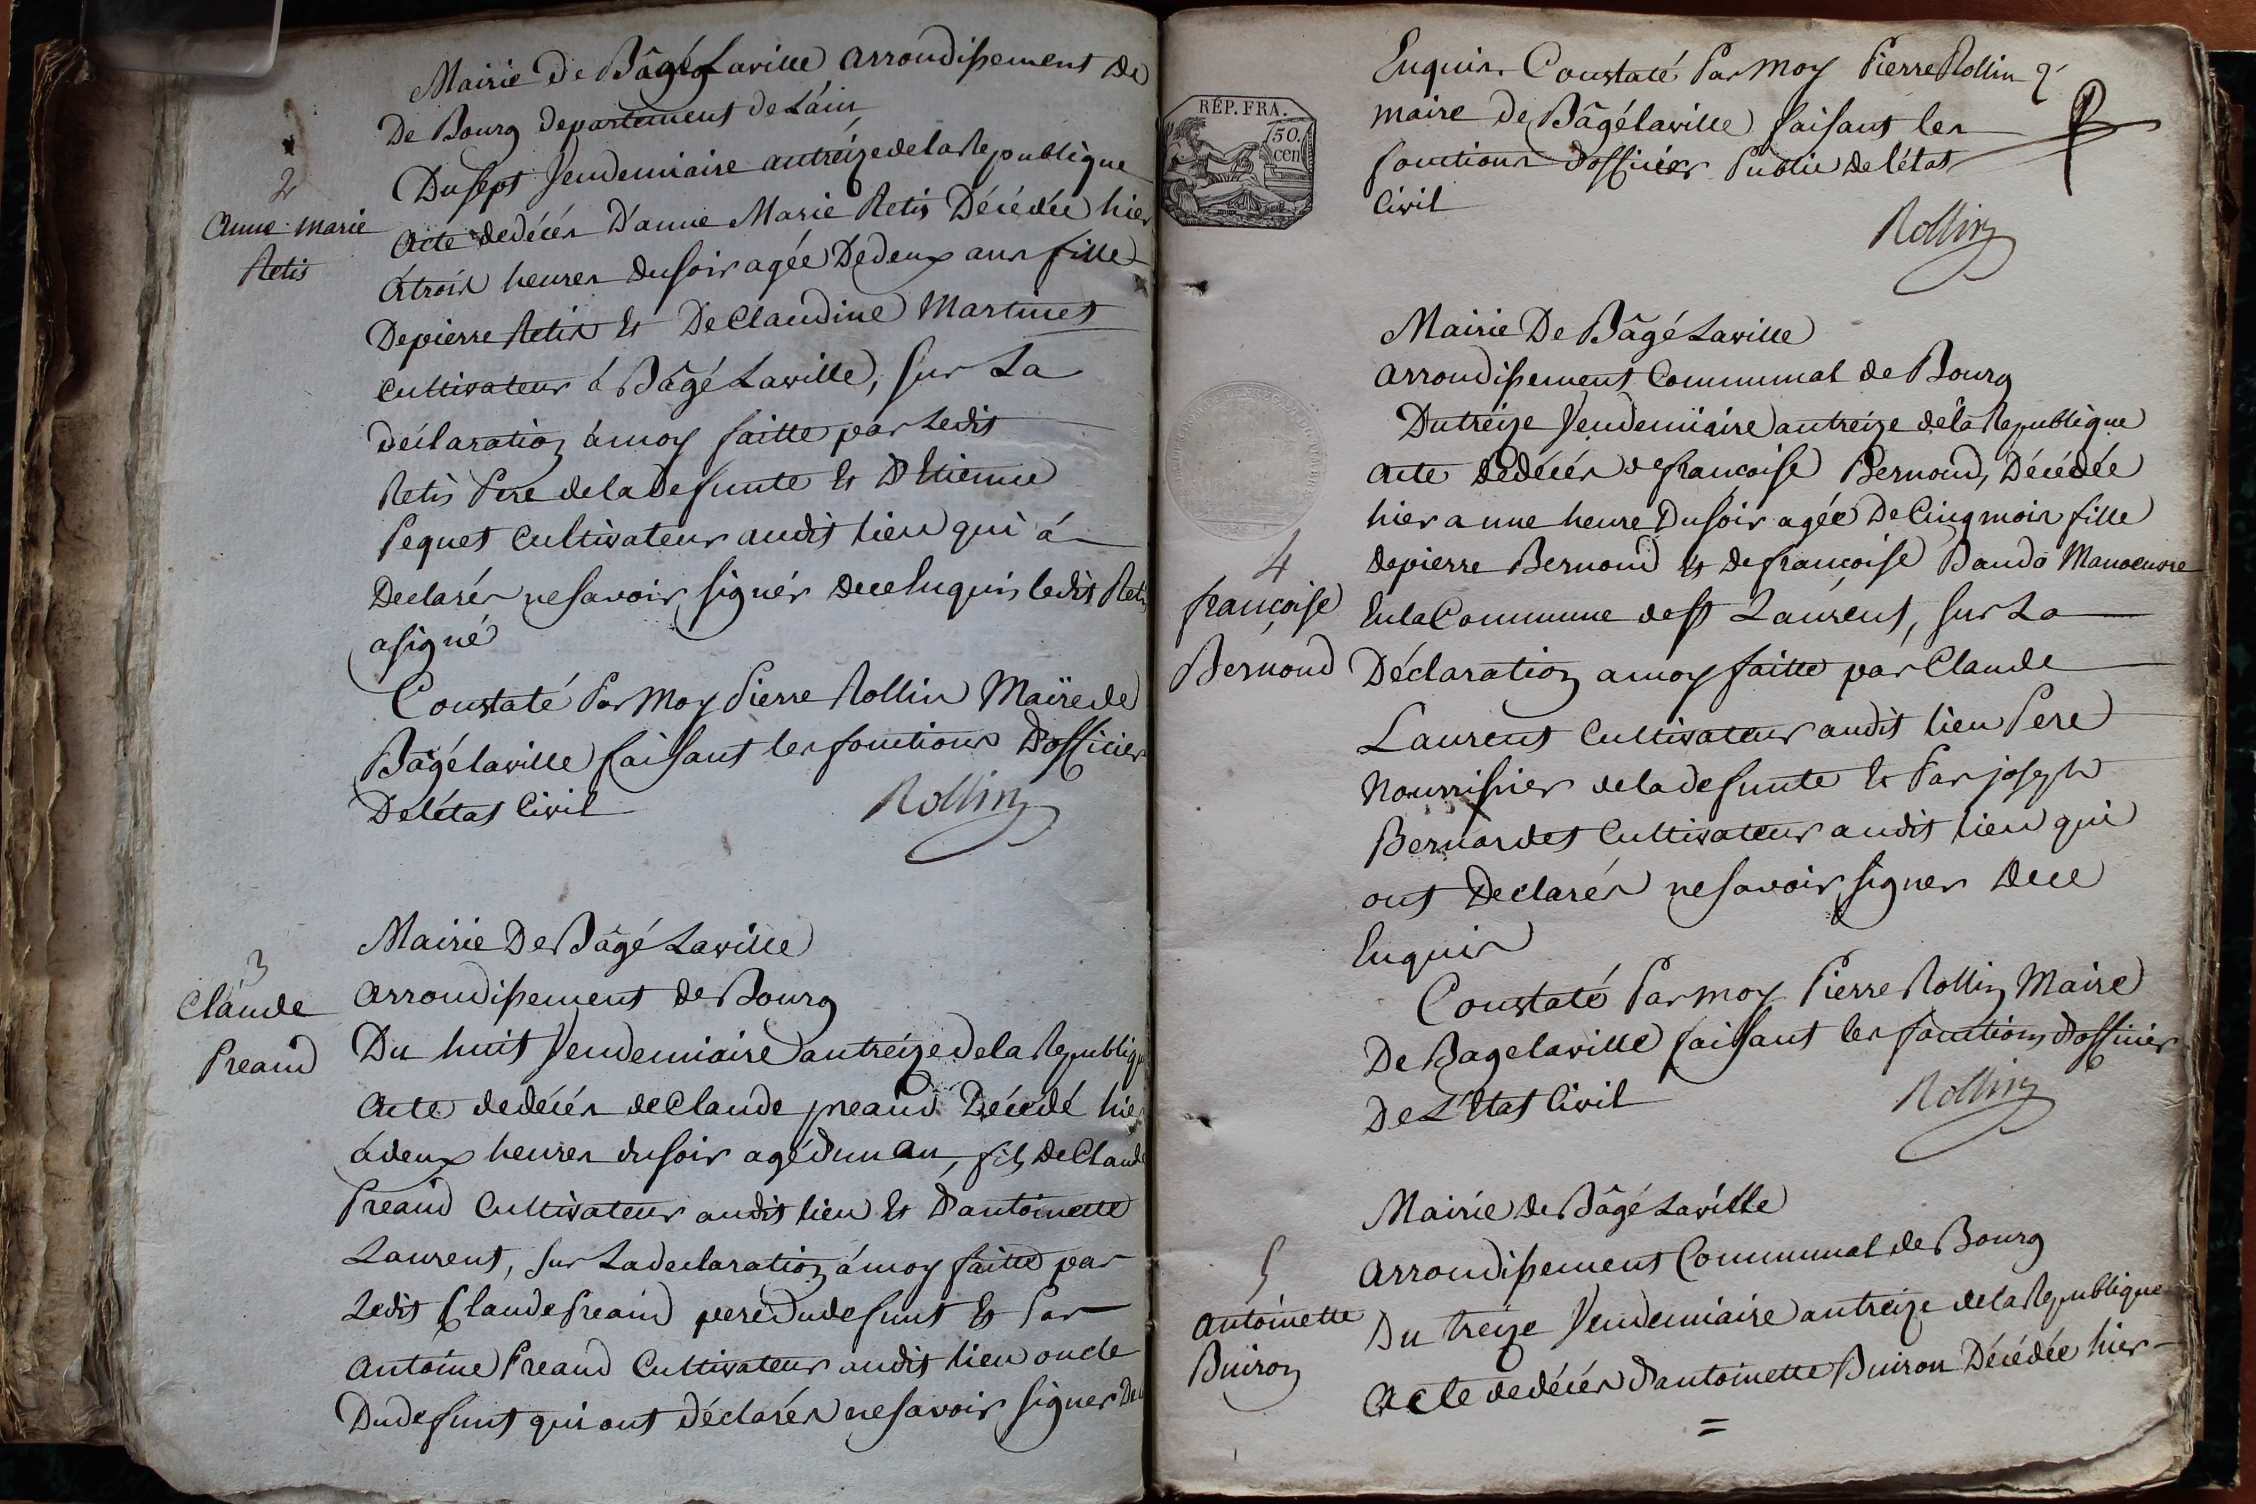 Mairie de Bâgé Laville arrondissement De
De Bourg departement de L'ain
Du sept Vendemiaire an treize de la Republique
2
Anne marie
Retis
Acte de décés D'anne Marie Retis Décédée hier
à trois heures du soir agée De deux ans fille
De pierre Retis et De Claudine Martinet
Cultivateur à Bâgé Laville, sur La
déclaration à moy faitte par Ledit
Retis Pere de la defunte et D'Etienne
Pequet Cultivateur audit lieu qui à
Declarés ne savoir signér de ce Enquis ledit Retis
a signé
Constaté Par Moy Pierre Rollin Maïre de
Bâgé laville faisant les fonctions D'officier
De létat Civil
Rollin
3
Claude
Preaud
Mairie De Bâgé Laville
arrondissement de Bourg
Du huit Vendemiaire an treize de la Republique
Acte de décés de Claude preaud Décédé hier
à deux heures du soir agé d'un an, fils De Claude
Preaud Cultivateur audit lieu et D'antoinette
Laurent, sur La declaration à moy faitte par
Ledit Claude Preaud pere du defunt et Par
Antoine Preaud Cultivateur audit lieu oncle
Du defunt qui ont déclarés ne savoir signer De ce
RÉP. FRA.
50.
cen
Enquis. Constaté Par Moy Pierre Rollin
maire de Bâgé laville faisant les
fonctions d'officier Public De l'état
Civil
Rollin
Mairie De Bâgé Laville
arrondissement Communal de Bourg
Du treize Vendemiaire an treize de la Republique
4
françoise
Bernoud
acte de décés de francoise Bernoud, Décédée
hier a une heure Du soir agée De Cinq mois fille
de pierre Bernoud et de francoise Baudo Manoeuvre
En la Commune de St Laurent, sur La
Déclaration a moy faitte par Claude
Laurent Cultivateur audit lieu Pere
Nourrissier de la defunte et Par joseph
Bernardet Cultivateur audit lieu qui
ont Declarés ne savoir signer De ce
Enquis
Constaté Par moy Pierre Rollin Maire
De Bage laville faisant les fonctions d'officier
De L'Etat Civil
Rollin
Mairie de Bâgé Laville
arrondissement Communal de Bourg
5
Antoinette
Buiron
Du treize Vendemiaire an treize de la Republique
Acte de décés d'antoinette Buiron Décédée hier